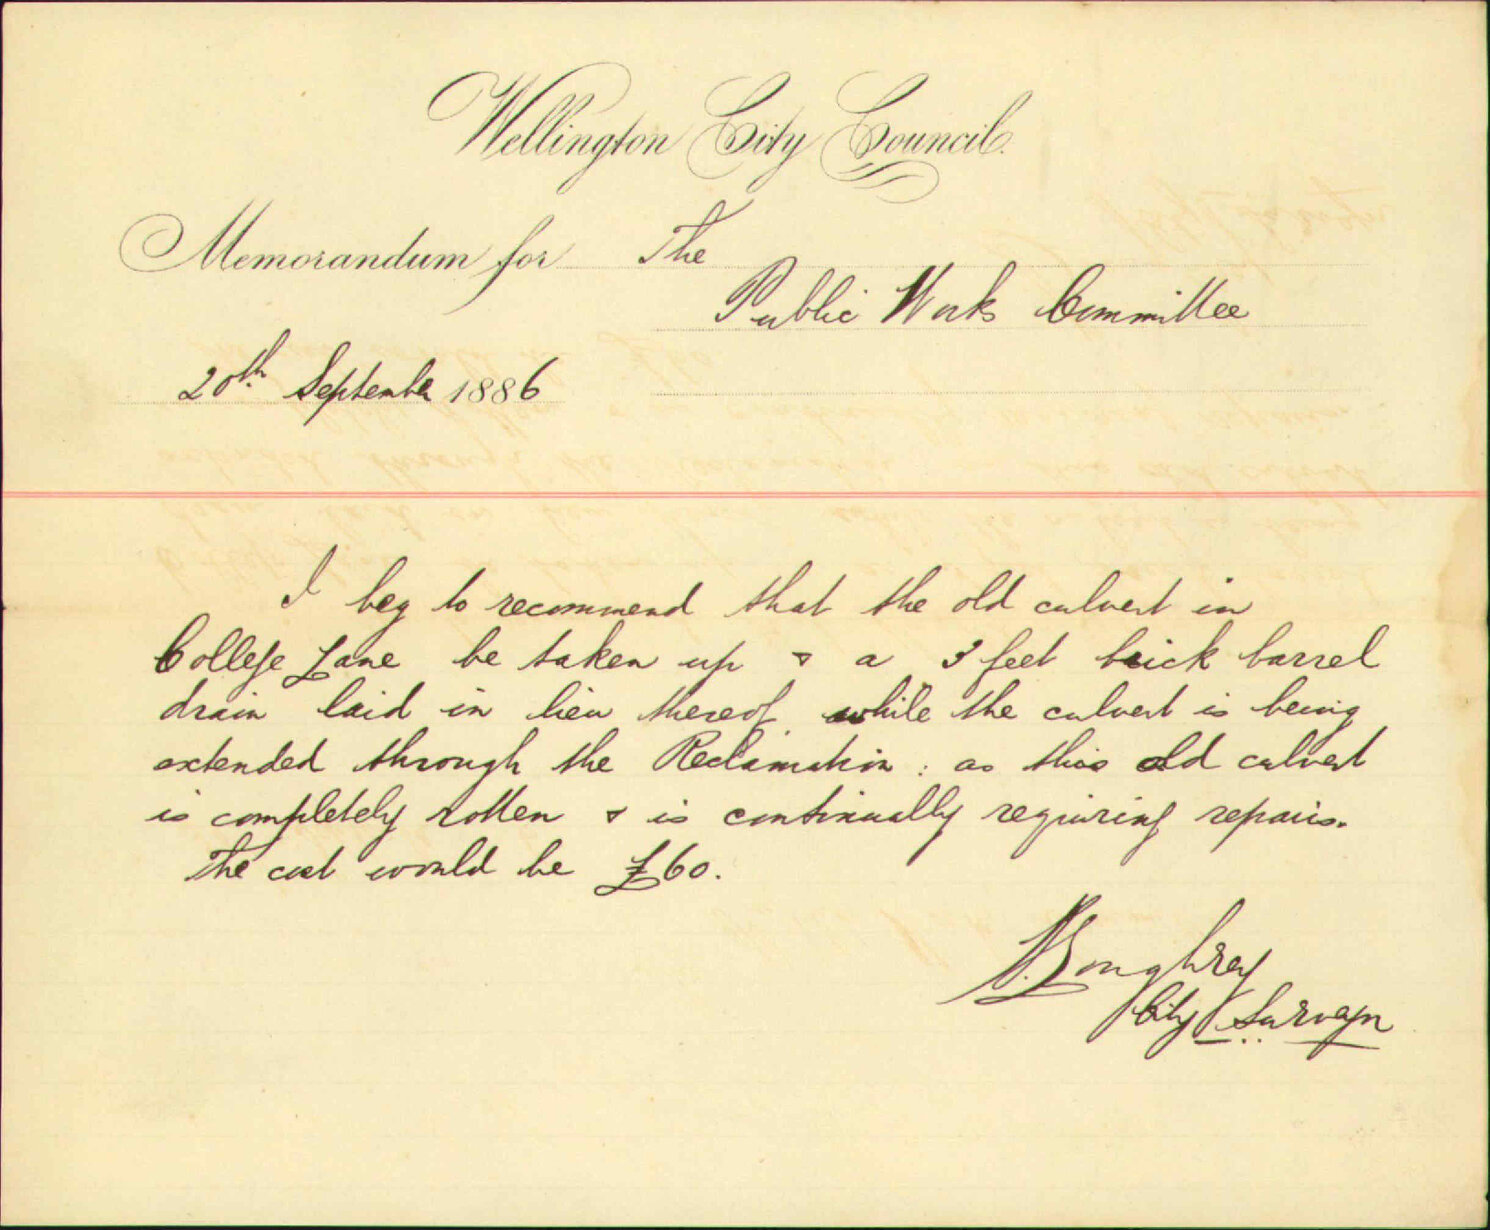 Wellington City Council.
Memorandum for The
Public Works Committee
20th. September 1886
I beg to recommend that the old culvert in
College Lane be taken up & a 3 feet brick barrel
drain laid in lieu thereof while the culvert is being
extended through the Reclamation : as this old culvert
is completely rotten & is continually requiring repairs.
The cost would be £60.
Loughrey
City Surveyor